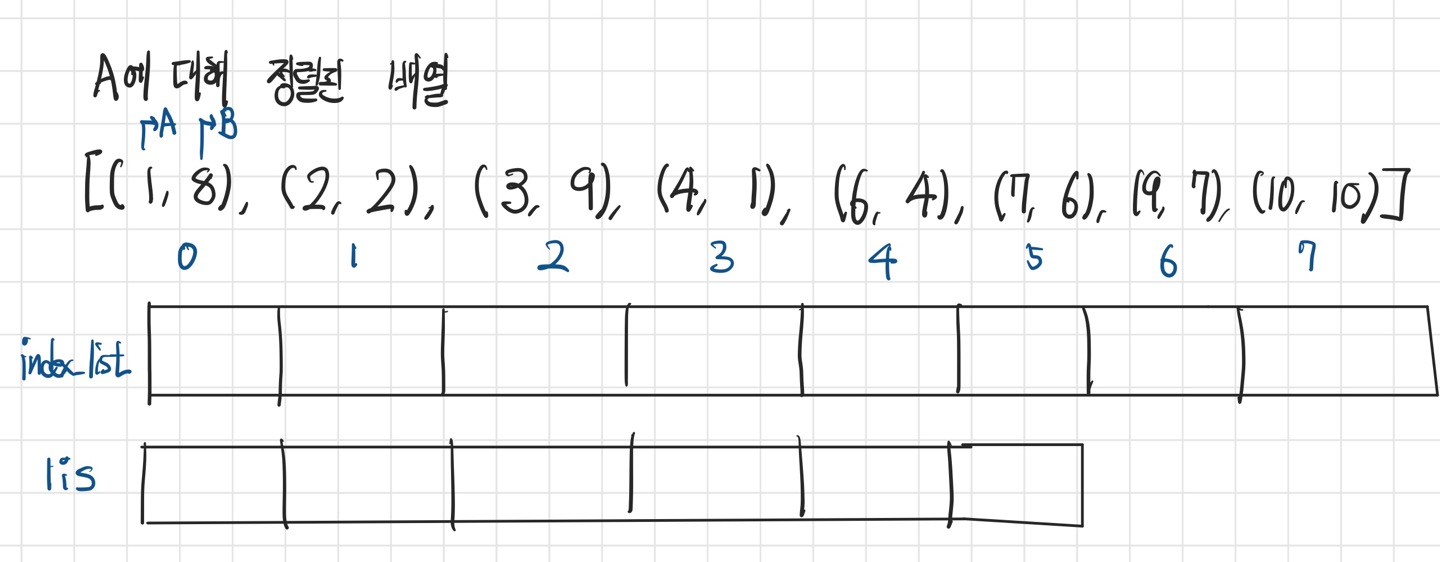 A에 대해 정렬된 배열
A B
[(1, 8), (2, 2), (3, 9), (4, 1), (6, 4), (7, 6), (9, 7), (10, 10)]
0 1 2 3 4 5 6 7
index_list
lis